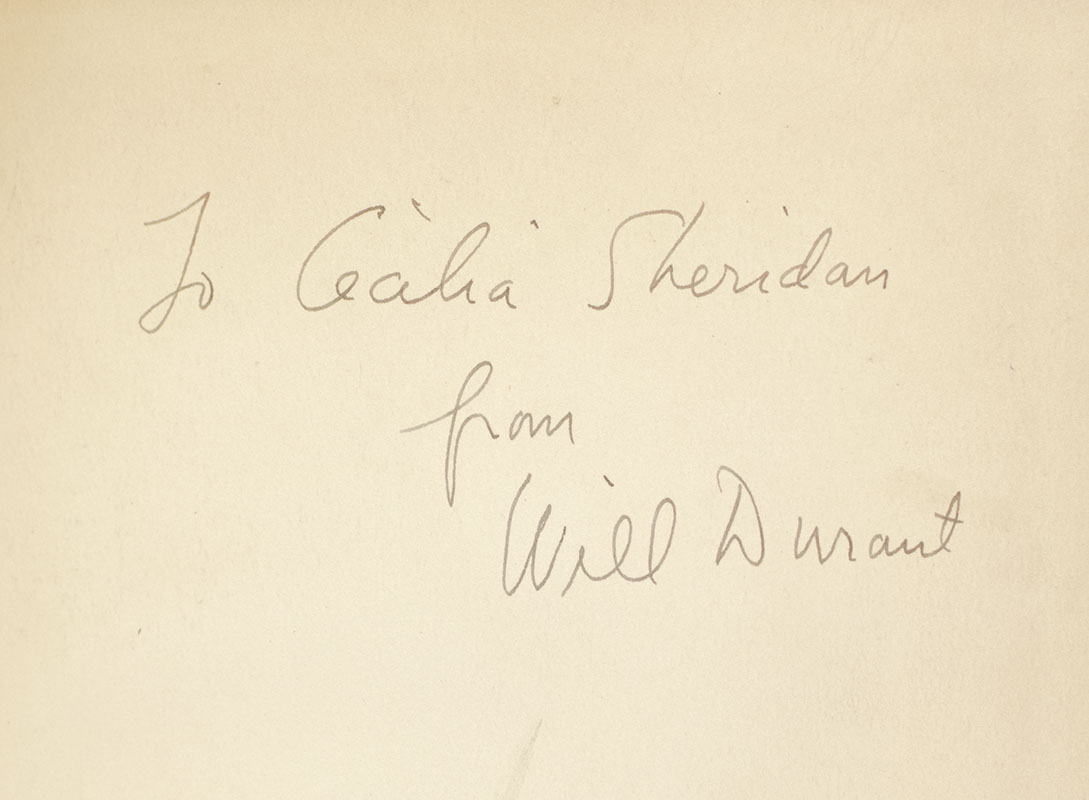 To Cecilia Sheridan
from
Will Durant